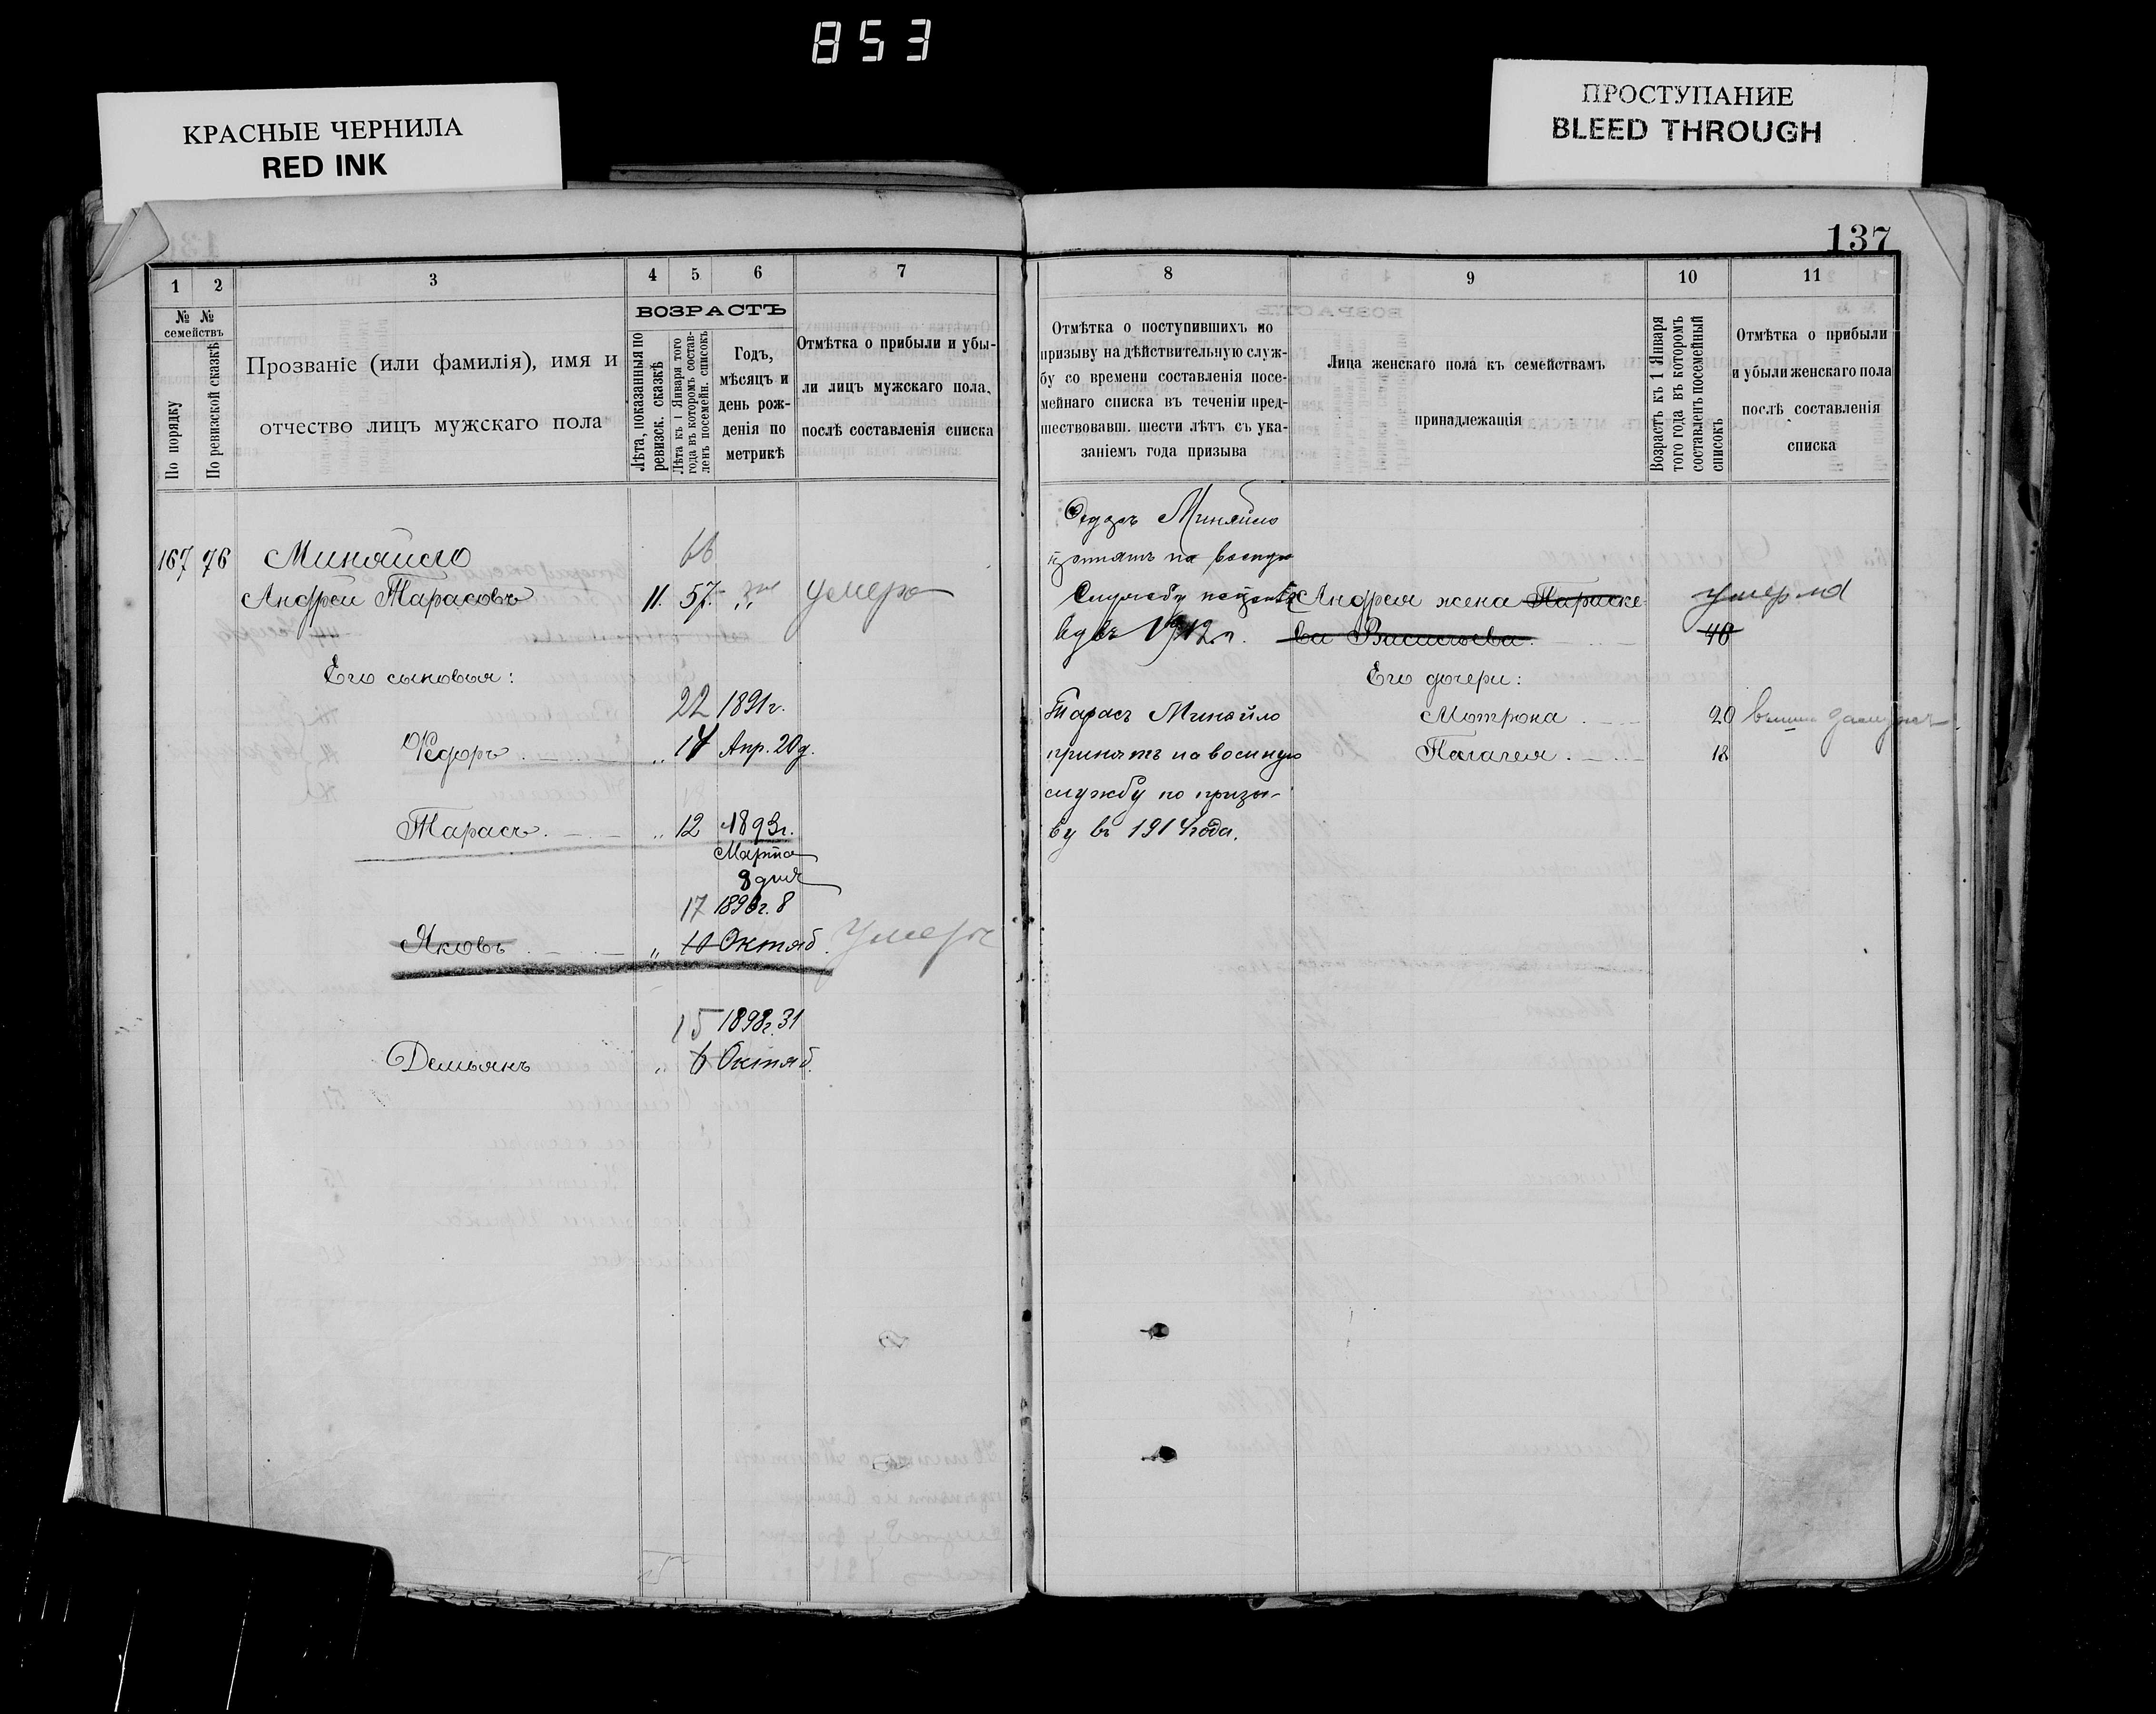 853
КРАСНЫЕ ЧЕРНИЛА
RED INK
ПРОСТУПАНИЕ
BLEED THROUGH
137
1 2 3 4 5 6 7
№ №
семействъ
По порядку
По ревизской сказкѣ
Прозваніе (или фамилія), имя и
отчество лицъ мужскаго пола
ВОЗРАСТЪ
Лѣта, показанныя по
ревизск. сказкѣ
Лѣта къ 1 Января того
года въ которомъ состав-
ленъ посемейн. списокъ
Годъ,
мѣсяцъ и
день рож-
денія по
метрикѣ
Отмѣтка о прибыли и убы-
ли лицъ мужскаго пола,
послѣ составленія списка
66
167 76 Миняйло
Андрей Тарасовъ 11. 57. умеръ
Его сыновья:
22 1891г.
Ѳедоръ „ 14 Апр. 20д.
Тарасъ „ 12 1893г.
Марта
8 дня
17 1896г. 8
Яковъ „ 10 Октяб. умеръ
15 1898г. 31
Демьянъ „ 6 Октяб.
8 9 10 11
Отмѣтка о поступившихъ по
призыву на дѣйствительную служ-
бу со времени составленія посе-
мейнаго списка въ теченіи пред-
шествовавш. шести лѣтъ съ ука-
заніемъ года призыва
Лица женскаго пола къ семействамъ
принадлежащія
Возрастъ къ 1 Января
того года въ которомъ
составленъ посемейный
списокъ
Отмѣтка о прибыли
и убыли женскаго пола
послѣ составленія
списка
Ѳедоръ Миняйло
принятъ на военную
службу
въ 1912 г.
Андрея жена Параске-
ва Васильева 48 умерла
Его дочери:
Мотрона 20 вышла замужъ
Палагея 18
Тарасъ Миняйло
принятъ на военную
службу по призы-
ву въ 1914 года.